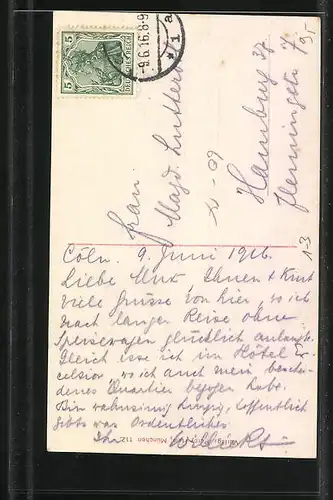 5 5
DEUTSCHES REICH
-9.6.16.8-9
* 1 a
Frau
Magd. Luttert
Hamburg 37
Flemingstr. 7
1-3
Cöln. 9. Juni 1916.
Liebe Mux, Ihnen & Kurt
viele Grüsse von hier, wo ich
nach langer Reise ohne
Speisewagen glücklich anlangte.
Gleich esse ich im Hôtel Ex-
celsior, wo ich auch mein beschei-
denes Quartier bezogen habe.
Bin wahnsinnig hungrig, hoffentlich
gibts was Ordentliches.
Ihr
München